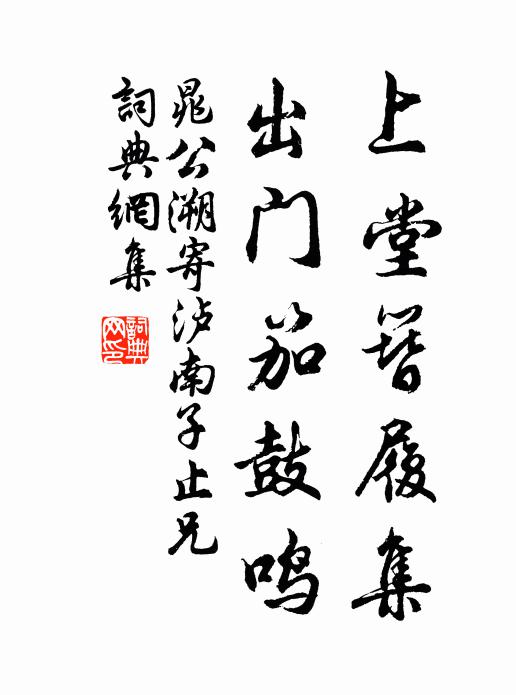 上堂簪履集
出门笳鼓鸣
晁公溯寄泸南子止兄
詞典網集
詞典网印